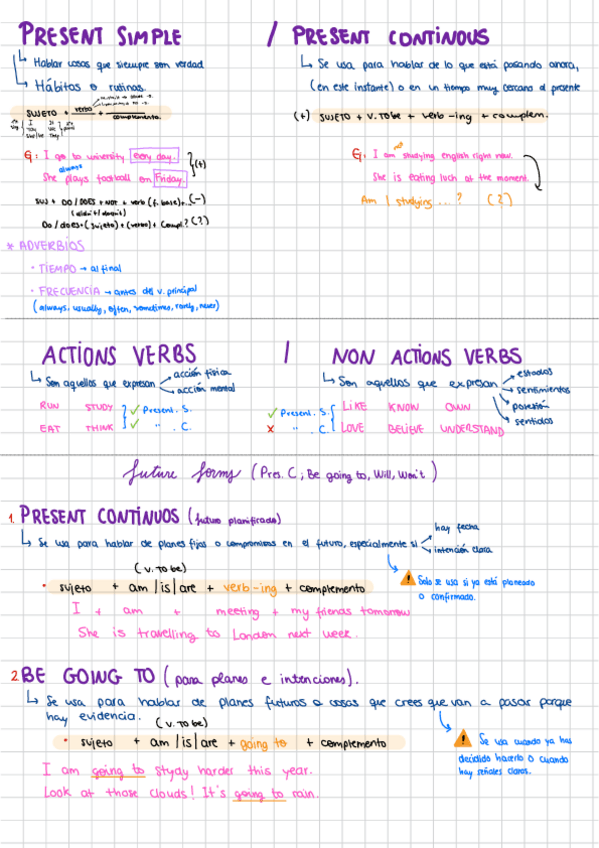 PRESENT SIMPLE / PRESENT CONTINOUS
Hablar cosas que siempre son verdad
Hábitos o rutinas.
SUJETO + verbo + complemento.
I
You
She/he
It
We
They
Ej: I go to university every day. (+)
always
She plays football on Friday.
SUJ + DO/DOES + NOT + verb (f. base)+... (-)
(didn't/doesn't)
Do/does+(sujeto)+(verbo)+ compl.? (?)
Se usa para hablar de lo que está pasando ahora,
(en este instante) o en un tiempo muy cercano al presente
(+) SUJETO + V. TO be + verb -ing + complem.
Ej: I am studying english right now.
She is eating luch at the moment.
Am I studying ... ? (?)
* ADVERBIOS
· TIEMPO → al final
· FRECUENCIA → antes del v. principal
(always, usually, often, sometimes, rarely, never)
ACTIONS VERBS / NON ACTIONS VERBS
Son aquellos que expresan acción física
acción mental
RUN STUDY ✓ Present. S.
EAT THINK ✓ " . C.
Son aquellos que expresan estados
sentimientos
posesión
sentidos
✓ Present. S. LIKE KNOW OWN
✗ " . C. LOVE BELIEVE UNDERSTAND
future forms (Pres. C ; Be going to, Will, Won't)
1. PRESENT CONTINUOS (futuro planificado)
Se usa para hablar de planes fijos o compromisos en el futuro, especialmente si hay fecha
intención clara
(v. TO be)
· sujeto + am | is | are + verb-ing + complemento
⚠ Solo se usa si ya está planeado
o confirmado.
I + am + meeting + my friends tomorrow
She is travelling to London next week.
2. BE GOING TO (para planes e intenciones).
Se usa para hablar de planes futuros o cosas que crees que van a pasar porque
hay evidencia. (v. TO be)
· sujeto + am | is | are + going to + complemento
⚠ Se usa cuando ya has
decidido hacerlo o cuando
hay señales claras.
I am going to styay harder this year.
Look at those clouds! It's going to rain.